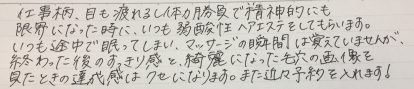 仕事柄、目も疲れるし体力勝負で精神的にも
限界になった時に、いつも弱酸性ヘアエステをしてもらいます。
いつも途中で眠ってしまい、マッサージの瞬間は覚えていませんが、
終わった後のすっきり感と、綺麗になった毛穴の画像を
見たときの達成感はクセになります。また近々予約を入れます!